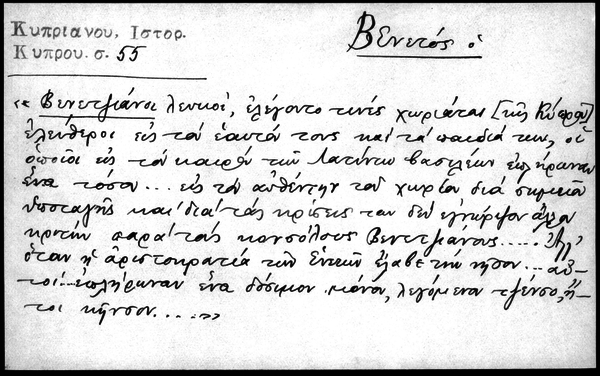 Κυπριανου, Ιστορ.
Κυπρου. σ. 55
Βενετός ὁ
« Βενετζιάνοι λευκοί, ἐλέγοντο τινές χωριάται [τῆς Κύπρου]
ἐλεύθεροι εἰς τόν ἑαυτόν τους καί τά παιδιά των, οἱ
ὁποῖοι εἰς τόν καιρόν τῶν Λατίνων βασιλέων ἐπλήρωναν
ἕνα τόσον... εἰς τόν αὐθέντην τοῦ χωρίου διά σημεῖον
ὑποταγῆς καί διά τάς κρίσεις των δέν ἐγνώριζον ἄλλον
κριτήν παρά τάς κονσόλους Βενετζιάνους..... Ἀλλ'
ὅταν ἡ ἀριστοκρατία τῶν Ἑνετῶν ἔλαβε τήν νῆσον... αὐ-
τοί ἐπλήρωναν ἕνα δόσιμον μόνον, λεγόμενον τζένσο, ἤ-
τοι κῆνσον..... »